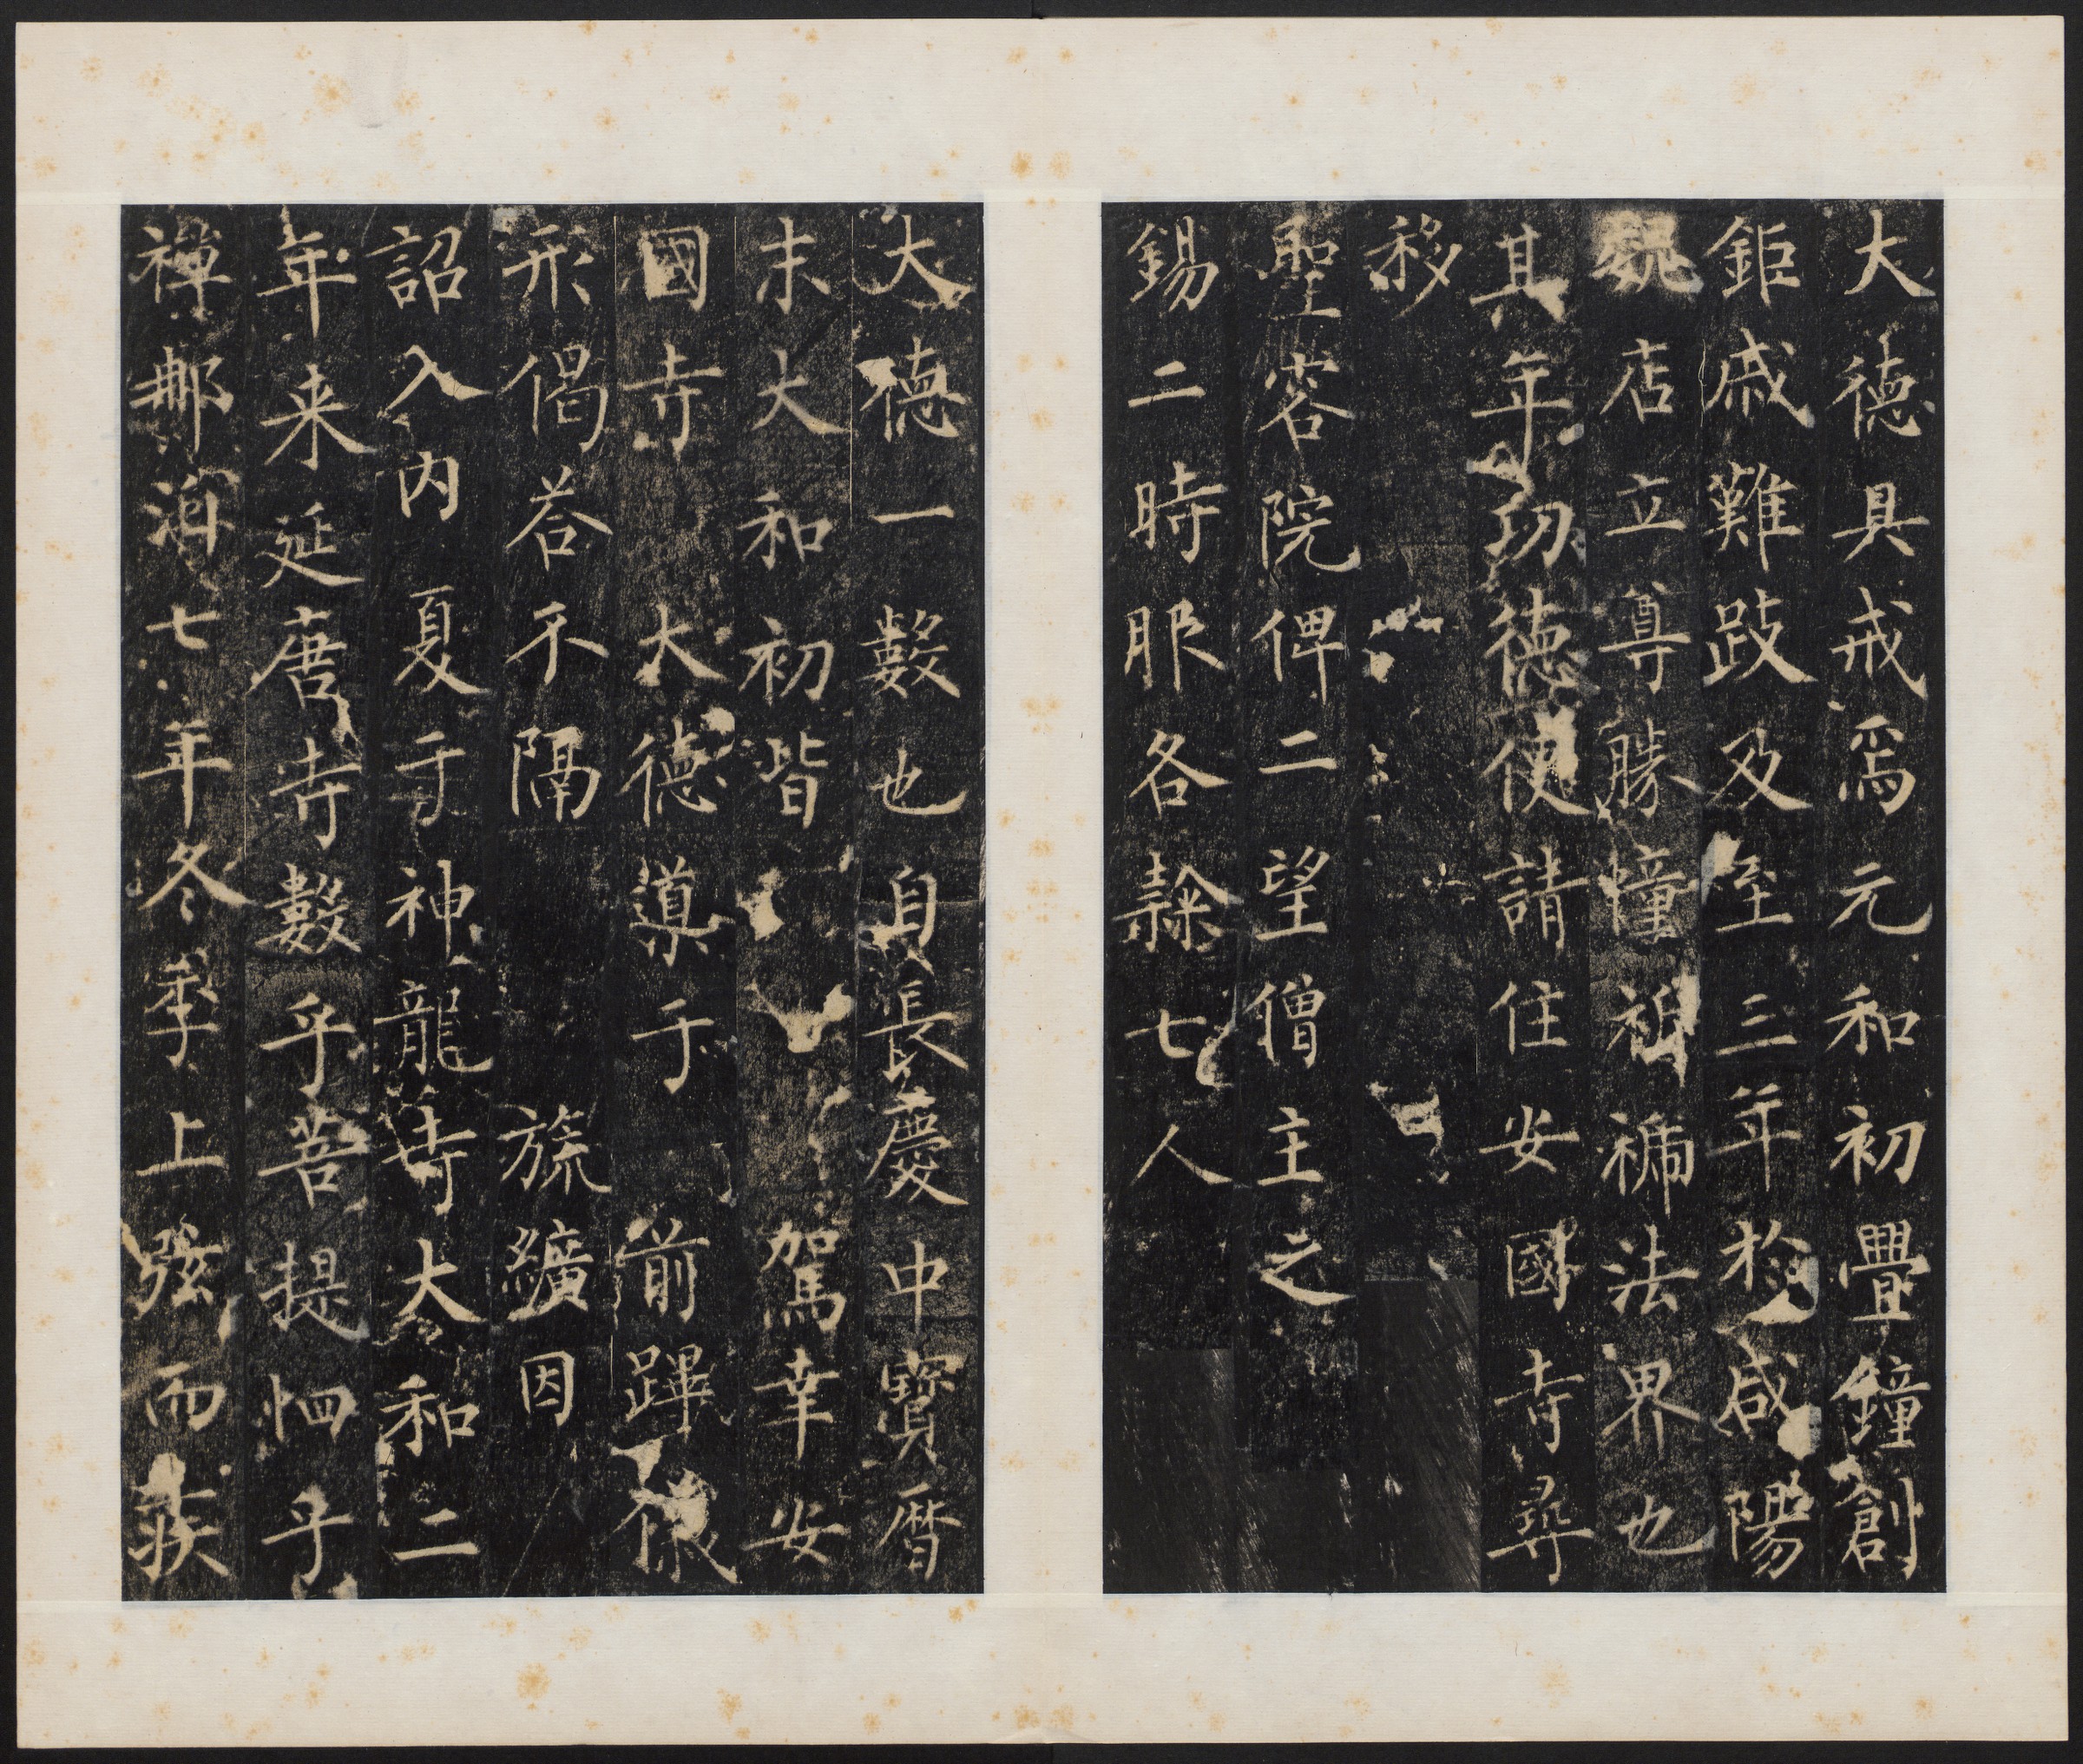 大德具戒爲元和初疊鐘創
鉅戚難跂及至三年於咸陽
魏店立尊勝幢祗禰法界也
其年功德使請住安國寺尋
移
聖容院俾二望僧主之
錫二時服各隷七人
大德一數也自長慶中寶曆
末大和初皆 駕幸安
國寺 大德導于 前蹕
形偈荅不隔 旒纊因
詔入內夏于神龍寺大和二
年来延唐寺數乎菩提怬乎
禪那洎七年冬季上弦而疾